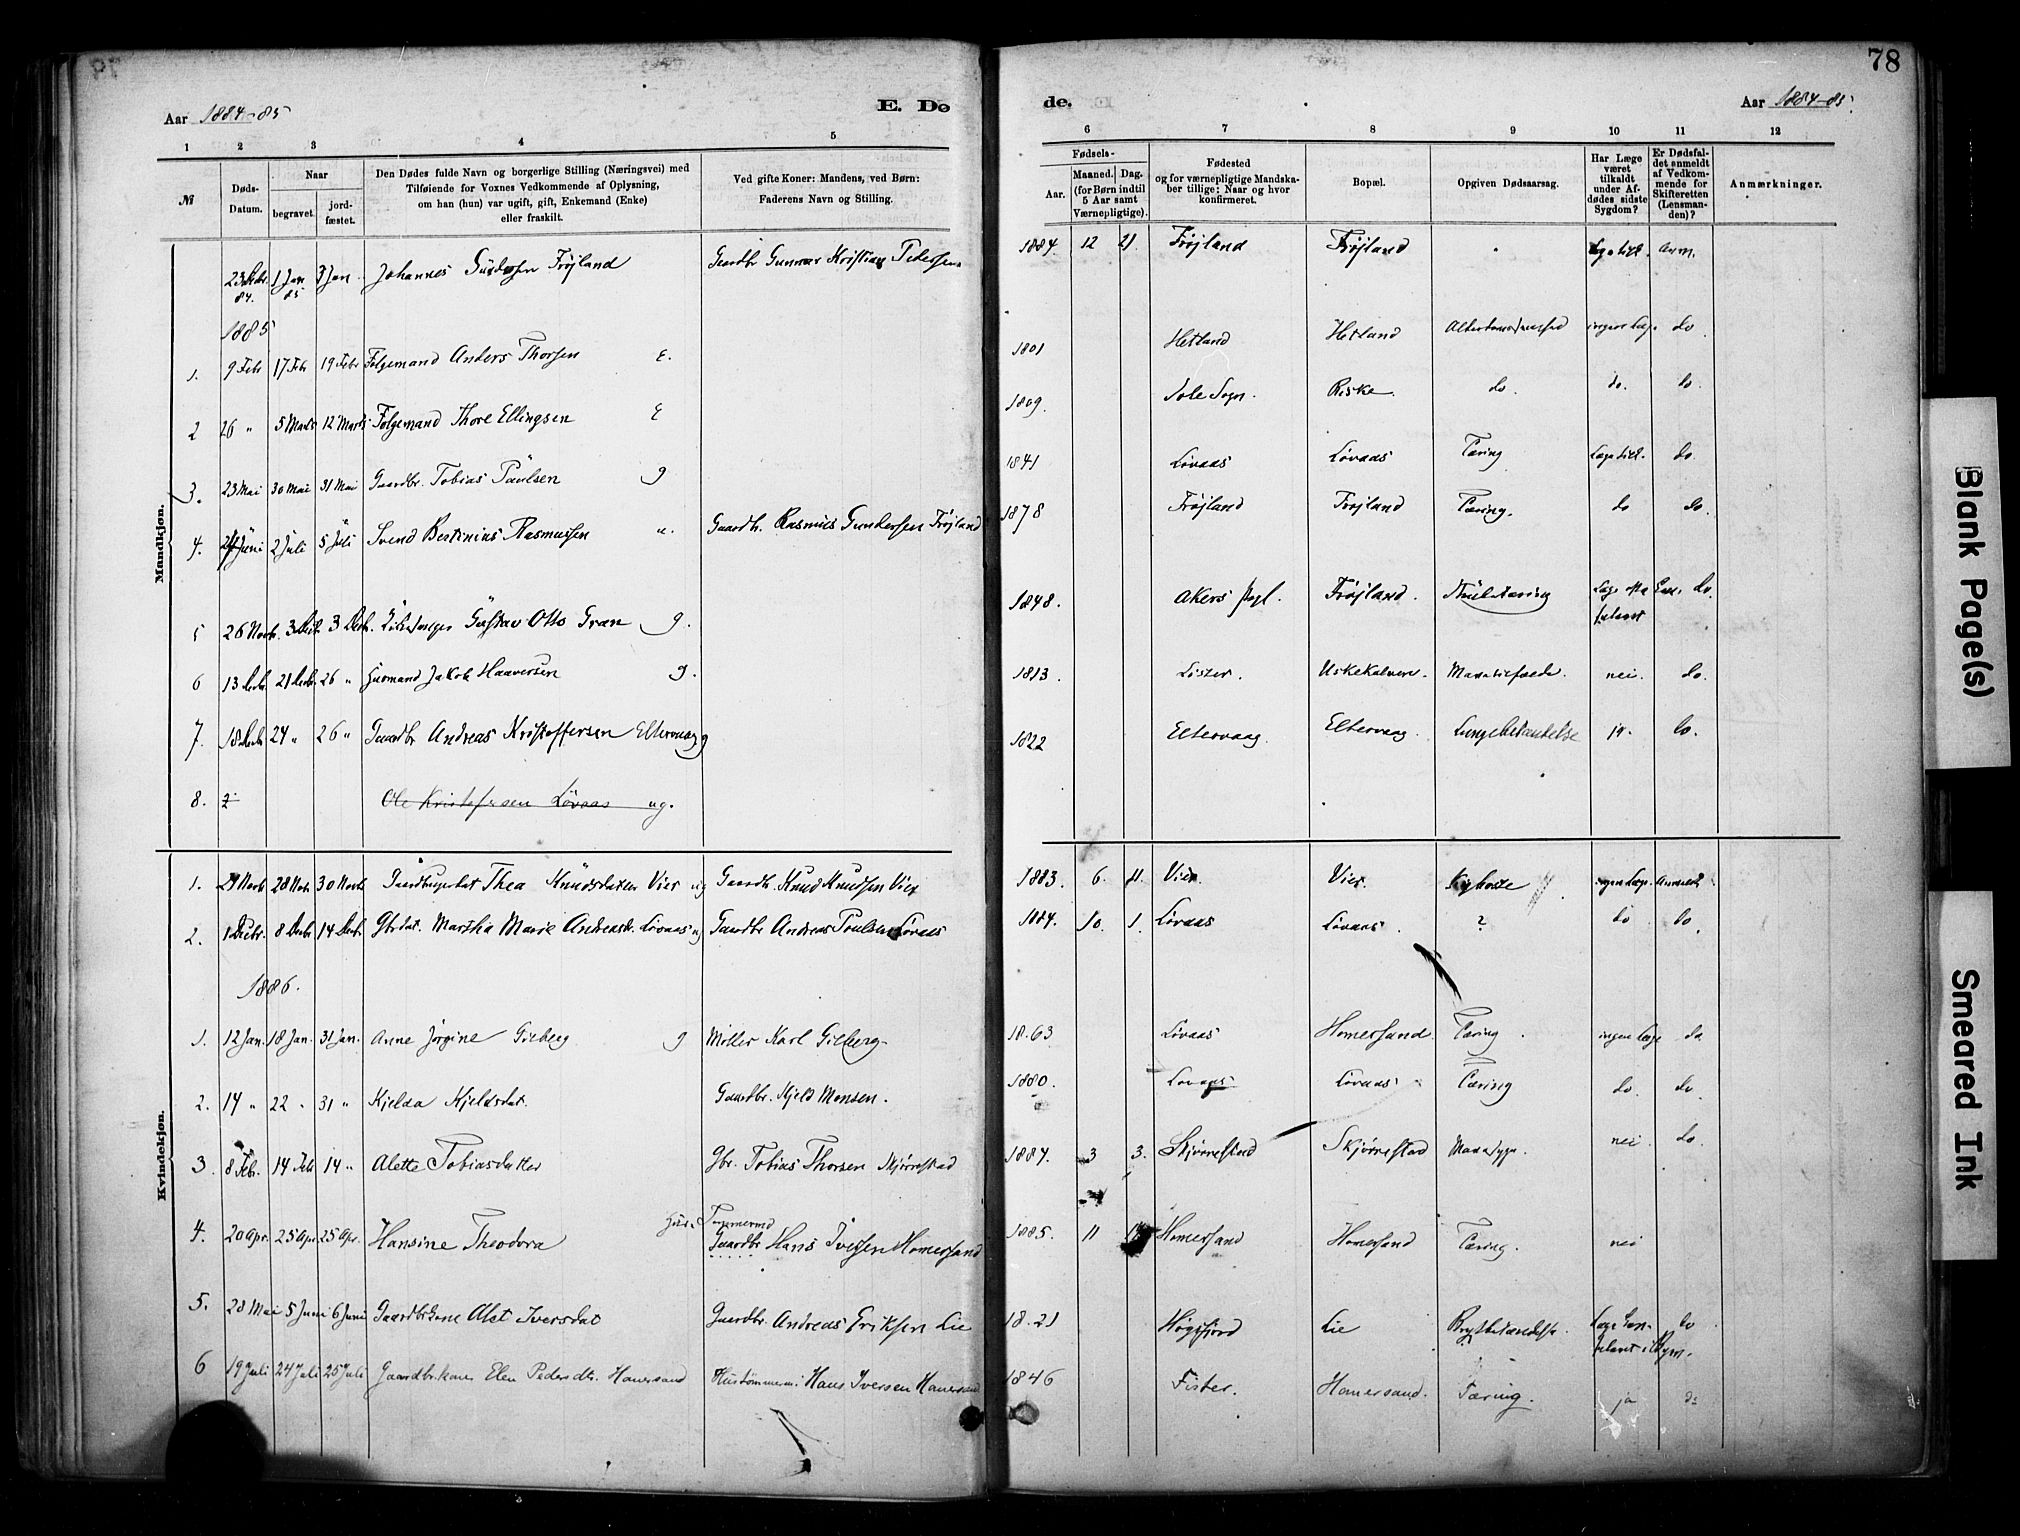 78
Aar 1884-85 E. Dø de. Aar 1884-85.
1 2 3 4 5 6 7 8 9 10 11 12
№
Døds-Datum.
Naar
begravet.
jordfæstet.
Den Dødes fulde Navn og borgerlige Stilling (Næringsvei) med
Tilføiende for Voxnes Vedkommende af Oplysning,
om han (hun) var ugift, gift, Enkemand (Enke)
eller fraskilt.
Ved gifte Koner: Mandens, ved Børn:
Faderens Navn og Stilling.
Fødsels-
Aar.
Maaned. Dag.
(for Børn indtil
5 Aar samt
Værnepligtige).
Fødested
og for værnepligtige Mandska-
ber tillige: Naar og hvor
konfirmeret.
Bopæl.
Opgiven Dødsaarsag.
Har Læge
været
tilkaldt
under Af-
dødes sidste
Sygdom?
Er Dødsfal-
det anmeldt
af Vedkom-
mende for
Skifteretten
(Lensman-
den)?
Anmærkninger.
Mandkjøn.
23 Decbr. 84. 1 Jan 85 3 Jan Johannes Frøjland Gaardbr Gunnar Kristian Pedersen 1884. 12 21 Frøjland Frøjland Anm.
1885
1. 9 Febr 17 Febr 19 Febr Følgemand Anders Thorsen E. 1801 Hetland Hetland ingen Læge do
2 26 " 5 Marts 12 Marts Følgemand Thore Ellingsen E 1809. Sole Sogn. Riske do. do. do.
3. 23 Mai 30 Mai 31 Mai Gaardbr. Tobias Paulsen g 1841 Løvaas Løvaas Tæring Læge tilk. do.
4. 24 Juni 2 Juli 5 Juli Svend Bertinius Rasmussen u. Gaardb. Rasmus Gundersen Frøjland 1878 Frøjland Frøjland Tæring. do do.
5 26 Novb. 3 Decb 3 Decb. Gustav Otto Gran g. 1848. Akers Pgl. Frøjland. Læge do.
6 13 Decb. 21 Decb. 26 " Husmand Jakob Haaversen g. 1813. Lister. Uskekalven. nei. do.
7. 18 Decb 24 " 26 " Gaardbr Andreas Kristoffersen Eltervaag g 1822 Eltervaag. Eltervaag. Lungebetændelse ja. do.
8. 2 Ole Løvaas ug.
Kvindekjøn.
1. 21 Novb 28 Nov. 30 Novb Thea Knudsdatter Vier ug Gaardb. Knud Knudsen Vier 1883. 6. 11. Vier. Vier. ingen Læge. Anmeldt
2. 1 Decbr. 8 Decbr 14 Decb Gbrdat. Martha Marie Andreasd. Løvaas ug Gaardbr Andreas Poulsen Løvaas 1884. 10. 1. Løvaas Løvaas. ? do do.
1886.
1. 12 Jan. 18 Jan. 31 Jan. Anne Jørgine Gilberg g Møller Karl Gilberg 1863 Løvaas Homersand Tæring. ingen Læge do
2. 14 " 22 " 31 " Kjelda Kjeldsdat. Gaardbr. Kjeld Monsen. 1880. Løvaas Løvaas Tæring do. do.
3. 8 Feb. 14 Feb 14 " Alette Tobiasdatter Gbr. Tobias Thorsen Skjørrestad 1884. 3 3. Skjørrestad Skjørrestad nei. do.
4. 20 Apr. 25 Apr 25 Apr. Hansine Theodora Hus. Tømmermd
Gaardbr Hans Iversen Homersand 1885. 11 Homersand Homersand Tæring. nei
5. 28 Mai 5 Juni 6 Juni Gaardbrkone Alet Iversdat Gaardbr. Andreas Eriksen Lie 1821 Høgsfjord Lie Brystbetændelse. do
6 19 Juli 24 Juli 25 Juli Gaardbrkone Elen Pedersdtr. Homersand Hans Iversen Homersand 1846 Fister. Homersand. Tæring. ja do
Blank Page(s)
Smeared Ink